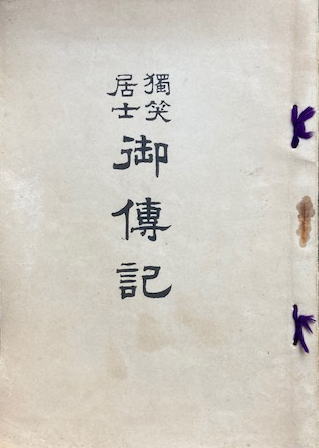 獨笑
居士
御傳記